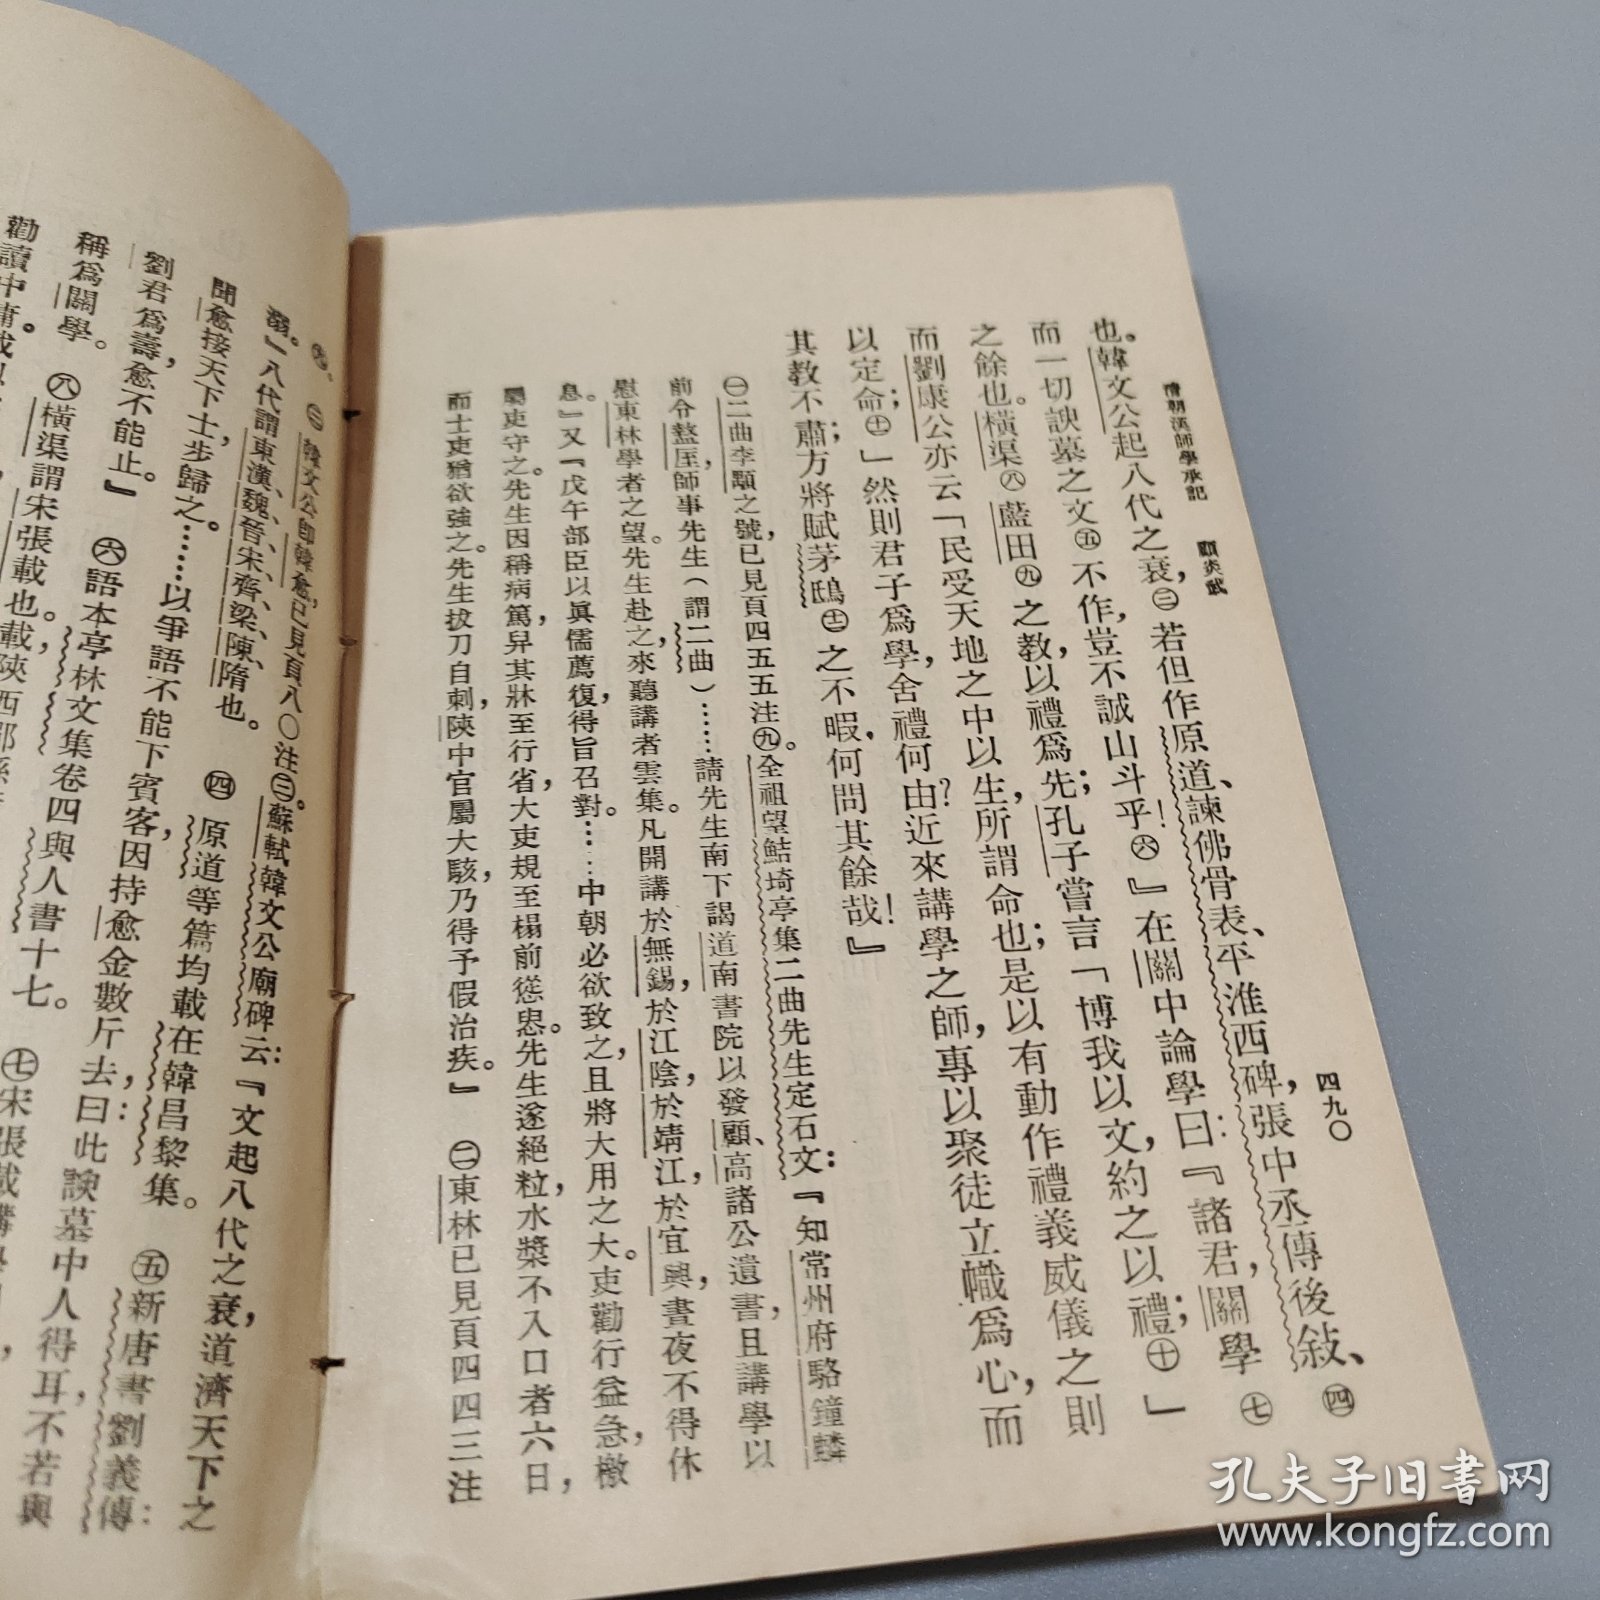 清朝漢師學承記　顧炎武　四九〇
也。韓文公起八代之衰，㊂若但作原道、諫佛骨表、平淮西碑，張中丞傳後敍、㊃
而一切諛墓之文㊄不作，豈不誠山斗乎！㊅』在關中論學曰：『諸君，關學㊆
之餘也。橫渠㊇藍田㊈之教，以禮爲先；孔子嘗言「博我以文，約之以禮；㊉」
而劉康公亦云「民受天地之中以生，所謂命也；是以有動作禮義威儀之則
以定命；」然則君子爲學，舍禮何由？近來講學之師，專以聚徒立幟爲心，而
其教不肅；方將賦茅鴟之不暇，何問其餘哉！』
㊀二曲李顒之號，已見頁四五五注㊈。全祖望鮚埼亭集二曲先生窆石文：『知常州府駱鐘麟
前令盩厔，師事先生（謂二曲）……請先生南下謁道南書院以發顧、高諸公遺書，且講學以
慰東林學者之望。先生赴之，來聽講者雲集。凡開講於無錫，於江陰，於靖江，於宜興，晝夜不得休
息。』又『戊午部臣以眞儒薦復，得旨召對。……中朝必欲致之，且將大用之。大吏勸行益急，檄
屬吏守之。先生因稱病篤，舁其牀至行省，大吏規至榻前慫恿。先生遂絕粒，水漿不入口者六日，
而士吏猶欲強之。先生拔刀自刺，陝中官屬大駭，乃得予假治疾。』　㊁東林已見頁四四三注
㊈。　㊂韓文公卽韓愈，已見頁八〇注㊂。蘇軾韓文公廟碑云：『文起八代之衰，道濟天下之
溺。』八代謂東漢、魏、晉、宋、齊、梁、陳、隋也。　㊃原道等篇均載在韓昌黎集。　㊄新唐書劉義傳：
聞愈接天下士，步歸之。……以爭語不能下賓客，因持愈金數斤去，曰：此諛墓中人得耳，不若與
劉君爲壽，愈不能止。』　㊅語本亭林文集卷四與人書十七。　㊆宋張載講學
稱爲關學。　㊇橫渠謂宋張載也。載陝西郿縣
勸讀中庸。
孔夫子旧书网
www.kongfz.com